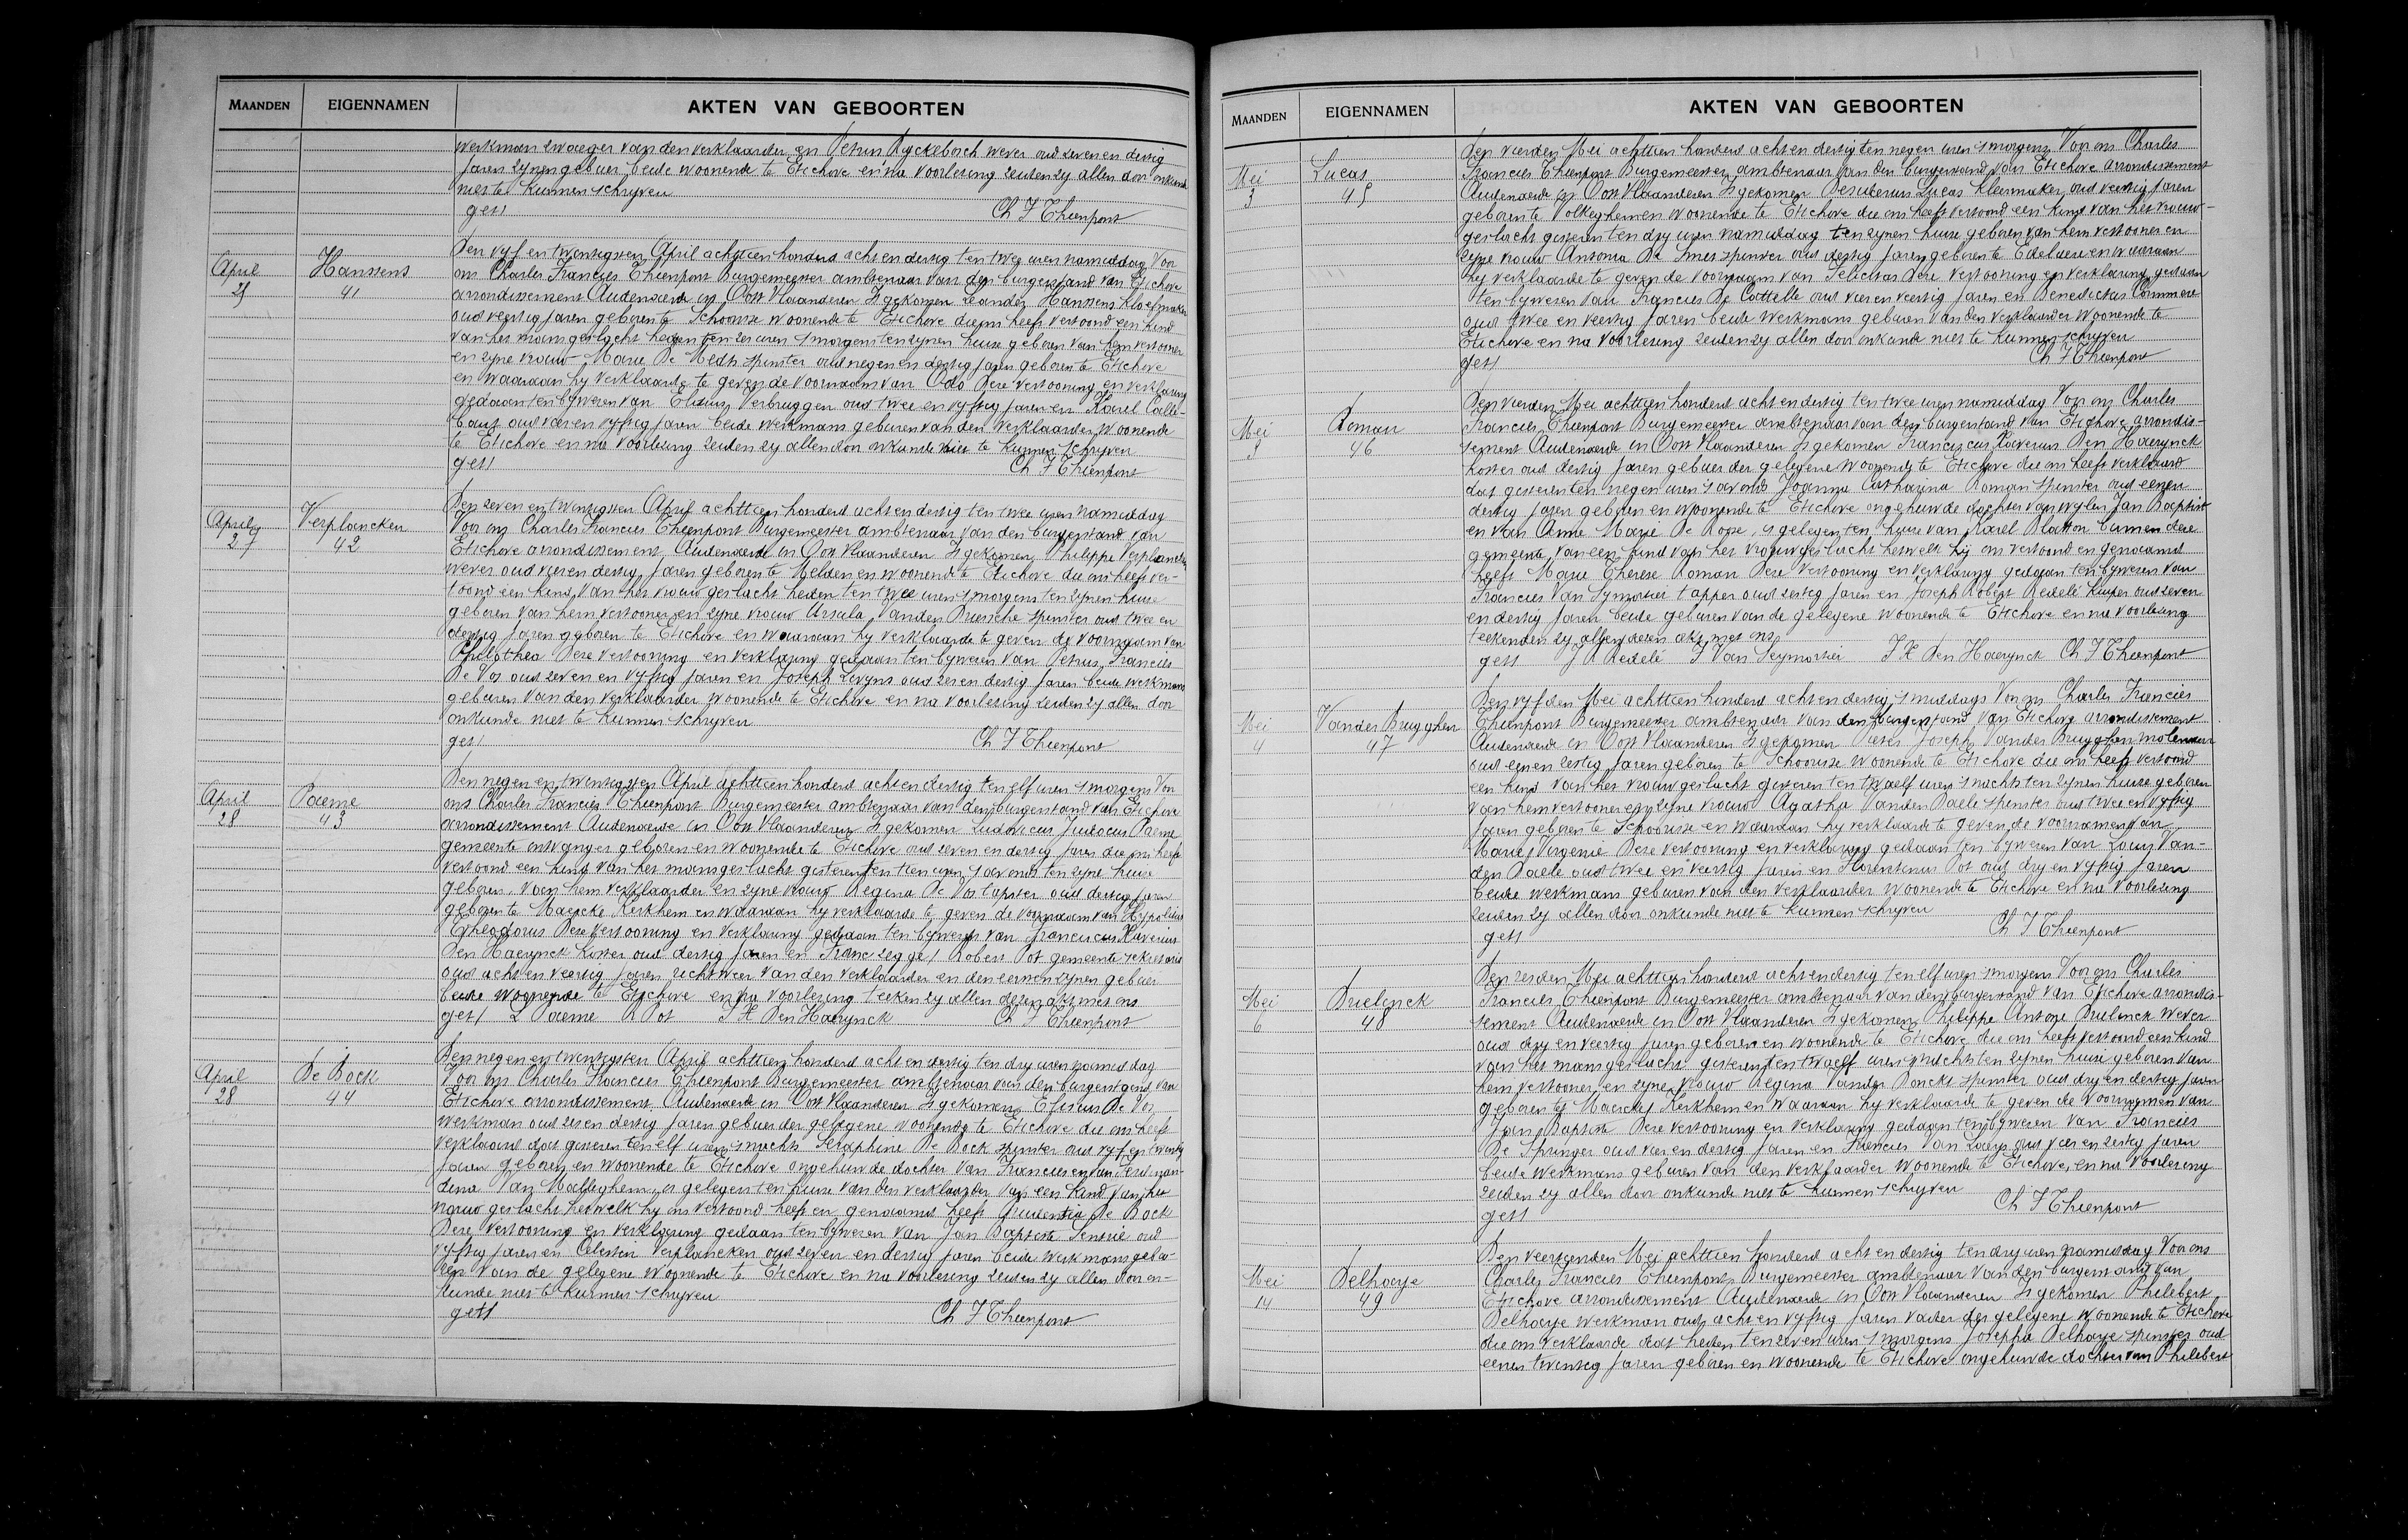 MAANDEN EIGENNAMEN AKTEN VAN GEBOORTEN
werkman zwaeger van den verklaarder en Petrus Ryckebosch wever oud zeven en dertig
jaren zynen gebuer beide woonende te Etichove en na voorlezing zeiden zy allen door onkunde
niet te kunnen schryven
get/ Ch F Thienpont
April
25
Hanssens
41
Den vyf en twentigsten April achttien honderd acht en dertig ten twee uren namiddag Voor
ons Charles Francies Thienpont Burgemeester ambtenaar van den burgerstand van Etichove
arrondissement Audenaerde in Oost Vlaanderen Is gekomen Leander Hanssens kloefmaker
oud veertig jaren geboren te Schoorisse woonende te Etichove die ons heeft vertoond een kind
van het mansgeslacht heden ten zes uren s morgens ten zynen huize geboren van hem vertooner
en zyne vrouw Marie De Medts spinster oud negen en dertig jaren geboren te Etichove
en waaraan hy verklaarde te geven de voornaam van Odo Deze vertooning en verklaring
gedaan ten bywezen van Elisius Verbruggen oud twee en vyftig jaren en Karel Calle-
baut oud vier en vyftig jaren beide werkmans geburen van den verklaarder woonende
te Etichove en na voorlezing zeiden zy allen door onkunde niet te kunnen schryven
get/ Ch F Thienpont
April
27
Verplancken
42
Den zeven en twentigsten April achttien honderd acht en dertig ten twee uren namiddag
Voor ons Charles Francies Thienpont Burgemeester ambtenaar van den burgerstand van
Etichove arrondissement Audenaerde in Oost Vlaanderen Is gekomen Philippe Verplancken
wever oud vier en dertig jaren geboren te Melden en woonende te Etichove die ons heeft ver-
toond een kind van het vrouwgeslacht heden ten twee uren s morgens ten zynen huize
geboren van hem vertooner en zyne vrouw Ursula Vanden Driessche spinster oud twee en
dertig jaren geboren te Etichove en waaraan hy verklaarde te geven de voornaam van
Philothea Deze vertooning en verklaring gedaan ten bywezen van Petrus Francies
De Vos oud zeven en vyftig jaren en Joseph Levyns oud zes en dertig jaren beide werkmans
geburen van den verklaarder woonende te Etichove en na voorlezing zeiden zy allen door
onkunde niet te kunnen schryven
get/ Ch F Thienpont
April
28
Paeme
43
Den negen en twentigsten April achttien honderd acht en dertig ten elf uren s morgens Voor
ons Charles Francies Thienpont Burgemeester ambtenaar van den burgerstand van Etichove
arrondissement Audenaerde in Oost Vlaanderen Is gekomen Ludovicus Judocus Paeme
gemeente ontvanger geboren en woonende te Etichove oud zeven en dertig jaren die ons heeft
vertoond een kind van het mansgeslacht gisteren ten tien uren s avonds ten zyne huize
geboren van hem verklaarder en zyne vrouw Regina De Vos tapster oud dertig jaren
geboren te Maercke Kerkhem en waaraan hy verklaarde te geven de voornaam van Hypolitus
Theodorus Deze vertooning en verklaring gedaan ten bywezen van Franciscus Xaverius
Den Haerynck koster oud dertig jaren en Franc zegge / Robert Pot gemeente sekretaris
oud acht en veertig jaren zichtweer van den verklaarder en den eersten zynen gebuer
beide woonende te Etichove en na voorlezing teeken zy allen dezen akt met ons
get/ L Paeme R Pot F X Den Haerynck Ch F Thienpont
April
28
De Bock
44
Den negen en twentigsten April achttien honderd acht en dertig ten dry uren namiddag
Voor ons Charles Francies Thienpont Burgemeester ambtenaar van den burgerstand van
Etichove arrondissement Audenaerde in Oost Vlaanderen Is gekomen Elisius De Vos
werkman oud zes en dertig jaren gebuer der gelegene woonende te Etichove die ons heeft
verklaard dat gisteren ten elf uren s nachts Seraphine De Bock spinster oud vyf en twentig
jaren geboren en woonende te Etichove ongehuwde dochter van Francies en van Ferdinan-
dina Van Malleghem is gelegen ten huize van den verklaarder van een kind van het
vrouwgeslacht hetwelk hy ons vertoond heeft en genaamd heeft Prudentia De Bock
Deze vertooning en verklaring gedaan ten bywezen van Jan Baptiste Sensie oud
vyftig jaren en Celesten Verplancken oud zeven en dertig jaren beide werkmans gebu-
ren van de gelegene woonende te Etichove en na voorlezing zeiden zy allen door on-
kunde niet te kunnen schryven
get/ Ch F Thienpont
MAANDEN EIGENNAMEN AKTEN VAN GEBOORTEN
Mei
3
Lucas
45
Den vierden Mei achttien honderd acht en dertig ten negen uren s morgens Voor ons Charles
Francies Thienpont Burgemeester ambtenaar van den burgerstand van Etichove arrondissement
Audenaerde in Oost Vlaanderen Is gekomen Desiderius Lucas kleermaker oud veertig jaren
geboren te Volkeghem en woonende te Etichove die ons heeft vertoond een kind van het vrouw-
geslacht gisteren ten dry uren namiddag ten zynen huize geboren van hem vertooner en
zyne vrouw Antonia De Smet spinster oud dertig jaren geboren te Edelaere en waaraan
hy verklaarde te geven de voornaam van Felicitas Deze vertooning en verklaring gedaan
ten bywezen van Francies De Cottelle oud vier en veertig jaren en Benedictus Commere
oud twee en veertig jaren beide werkmans geburen van den verklaarder woonende te
Etichove en na voorlezing zeiden zy allen door onkunde niet te kunnen schryven
get/ Ch F Thienpont
Mei
3
Roman
46
Den vierden Mei achttien honderd acht en dertig ten twee uren namiddag Voor ons Charles
Francies Thienpont Burgemeester ambtenaar van den burgerstand van Etichove arrondis-
sement Audenaerde in Oost Vlaanderen Is gekomen Franciscus Xaverius Den Haerynck
koster oud dertig jaren gebuer der gelegene woonende te Etichove die ons heeft verklaard
dat gisteren ten negen uren s avonds Joanna Catharina Roman spinster oud eenen
dertig jaren geboren en woonende te Etichove ongehuwde dochter van wylen Jan Baptist
en van Anne Marie De Rose, is gelegen ten huize van Karel Blatton binnen deze
gemeente van een kind van het vrouwgeslacht hetwelk hij ons vertoond en genaamd
heeft Marie Therese Roman Deze vertooning en verklaring gedaan ten bywezen van
Francies Van Symortier tapper oud zestig jaren en Joseph Robert Redelé kuiper oud zeven
en dertig jaren beide geburen van de gelegene woonende te Etichove en na voorlezing
teekenden zy allen dezen akt met ons
get/ J R Redelé F Van Seymortier F X Den Haerynck Ch F Thienpont
Mei
4
Vander Brugghen
47
Den vyfden Mei achttien honderd acht en dertig s middags Voor ons Charles Francies
Thienpont Burgemeester ambtenaar van den burgerstand van Etichove arrondissement
Audenaerde in Oost Vlaanderen Is gekomen Pieter Joseph Vander Brugghen molenaar
oud eenen zestig jaren geboren te Schoorisse woonende te Etichove die ons heeft vertoond
een kind van het vrouwgeslacht gisteren ten twaelf uren s nachts ten zynen huize geboren
van hem vertooner en zyne vrouw Agatha Vanden Daele spinster oud twee en vyftig
jaren geboren te Schoorisse en waaraan hy verklaarde te geven de voornamen van
Marie Virgenie Deze vertooning en verklaring gedaan ten bywezen van Louis Van-
den Daele oud twee en veertig jaren en Florentinus Pot oud dry en vyftig jaren
beide werkmans geburen van den verklaarder woonende te Etichove en na voorlezing
zeiden zy allen door onkunde niet te kunnen schryven
get/ Ch F Thienpont
Mei
6
Drielynck
48
Den zesden Mei achttien honderd acht en dertig ten elf uren s morgens Voor ons Charles
Francies Thienpont Burgemeester ambtenaar van den burgerstand van Etichove arrondis-
sement Audenaerde in Oost Vlaanderen Is gekomen Philippe Antone Drielinck wever
oud dry en veertig jaren geboren en woonende te Etichove die ons heeft vertoond een kind
van het mansgeslacht gisteren ten twaelf uren s nachts ten zynen huize geboren van
hem vertooner en zyne vrouw Regina Vander Donckt spinster oud dry en dertig jaren
geboren te Maercke Kerkhem en waaraan hy verklaarde te geven de voornamen van
Jan Baptiste Deze vertooning en verklaring gedaan ten bywezen van Francies
De Springer oud vier en dertig jaren en Francies Van Laeys oud vier en zestig jaren
beide werkmans geburen van den verklaarder woonende te Etichove, en na voorlezing
zeiden zy allen door onkunde niet te kunnen schryven
get/ Ch F Thienpont
Mei
14
Delhaeye
49
Den veertienden Mei achttien honderd acht en dertig ten dry uren namiddag Voor ons
Charles Francies Thienpont Burgemeester ambtenaar van den burgerstand van
Etichove arrondissement Audenaerde in Oost Vlaanderen Is gekomen Philebert
Delhaeye werkman oud acht en vyftig jaren vader der gelegene woonende te Etichove
die ons verklaarde dat heden ten zeven uren s morgens Josepha Delhaeye spinster oud
eenen twintig jaren geboren en woonende te Etichove ongehuwde dochter van Philebert